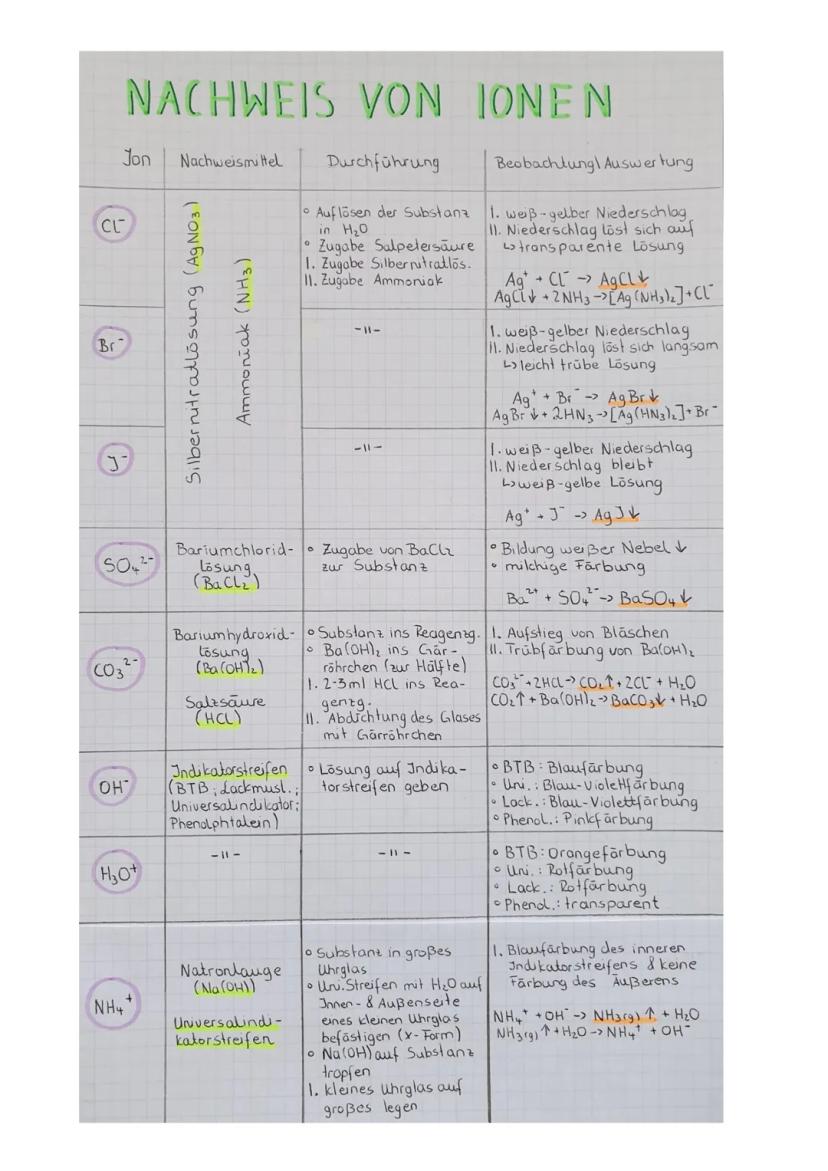 NACHWEIS VON IONEN
Jon
Nachweismittel
Durchführung
Beobachtung\ Auswertung
Cl⁻
Silbernitratlösung (AgNO₃)
Ammoniak (NH₃)
° Auflösen der Substanz
in H₂O
° Zugabe Salpetersäure
I. Zugabe Silbernitratlös.
II. Zugabe Ammoniak
I. weiß-gelber Niederschlag
II. Niederschlag löst sich auf
↳transparente Lösung
Ag⁺ + Cl⁻ → AgCl↓
AgCl↓ + 2NH₃ →[Ag(NH₃)₂]+Cl⁻
Br⁻
-II-
I. weiß-gelber Niederschlag
II. Niederschlag löst sich langsam
↳leicht trübe Lösung
Ag⁺ + Br⁻ → AgBr↓
AgBr↓ + 2HN₃ →[Ag(HN₃)₂]+Br⁻
J⁻
-II-
I. weiß-gelber Niederschlag
II. Niederschlag bleibt
↳weiß-gelbe Lösung
Ag⁺ + J⁻ → AgJ↓
SO₄²⁻
Bariumchlorid-
lösung
(BaCl₂)
° Zugabe von BaCl₂
zur Substanz
° Bildung weißer Nebel ↓
° milchige Färbung
Ba²⁺ + SO₄²⁻→ BaSO₄↓
CO₃²⁻
Bariumhydroxid-
lösung
(Ba(OH)₂)
Salzsäure
(HCL)
° Substanz ins Reagenzg.
° Ba(OH)₂ ins Gär-
röhrchen (zur Hälfte)
I. 2-3ml HCl ins Rea-
genzg.
II. Abdichtung des Glases
mit Gärröhrchen
I. Aufstieg von Bläschen
II. Trübfärbung von Ba(OH)₂
CO₃²⁻+2HCL→ CO₂↑+2CL⁻ + H₂O
CO₂↑ + Ba(OH)₂→ BaCO₃↓ + H₂O
OH⁻
Indikatorstreifen
(BTB; Lackmusl.;
Universalindikator;
Phenolphtalein)
° Lösung auf Indika-
torstreifen geben
° BTB: Blaufärbung
° Uni.: Blau-Violettfärbung
° Lack.: Blau-Violettfärbung
° Phenol.: Pinkfärbung
H₃O⁺
-II-
-II-
° BTB: Orangefärbung
° Uni.: Rotfärbung
° Lack.: Rotfärbung
° Phenol.: transparent
NH₄⁺
Natronlauge
(Na(OH))
Universalindi-
katorstreifen
° Substanz in großes
Uhrglas
° Uni.Streifen mit H₂O auf
Innen- & Außenseite
eines kleinen Uhrglas
befästigen (x-Form)
° Na(OH) auf Substanz
tropfen
I. kleines Uhrglas auf
großes legen
I. Blaufärbung des inneren
Indikatorstreifens & keine
Färbung des Äußerens
NH₄⁺ + OH⁻ → NH₃(g)↑ + H₂O
NH₃(g)↑+H₂O → NH₄⁺ + OH⁻